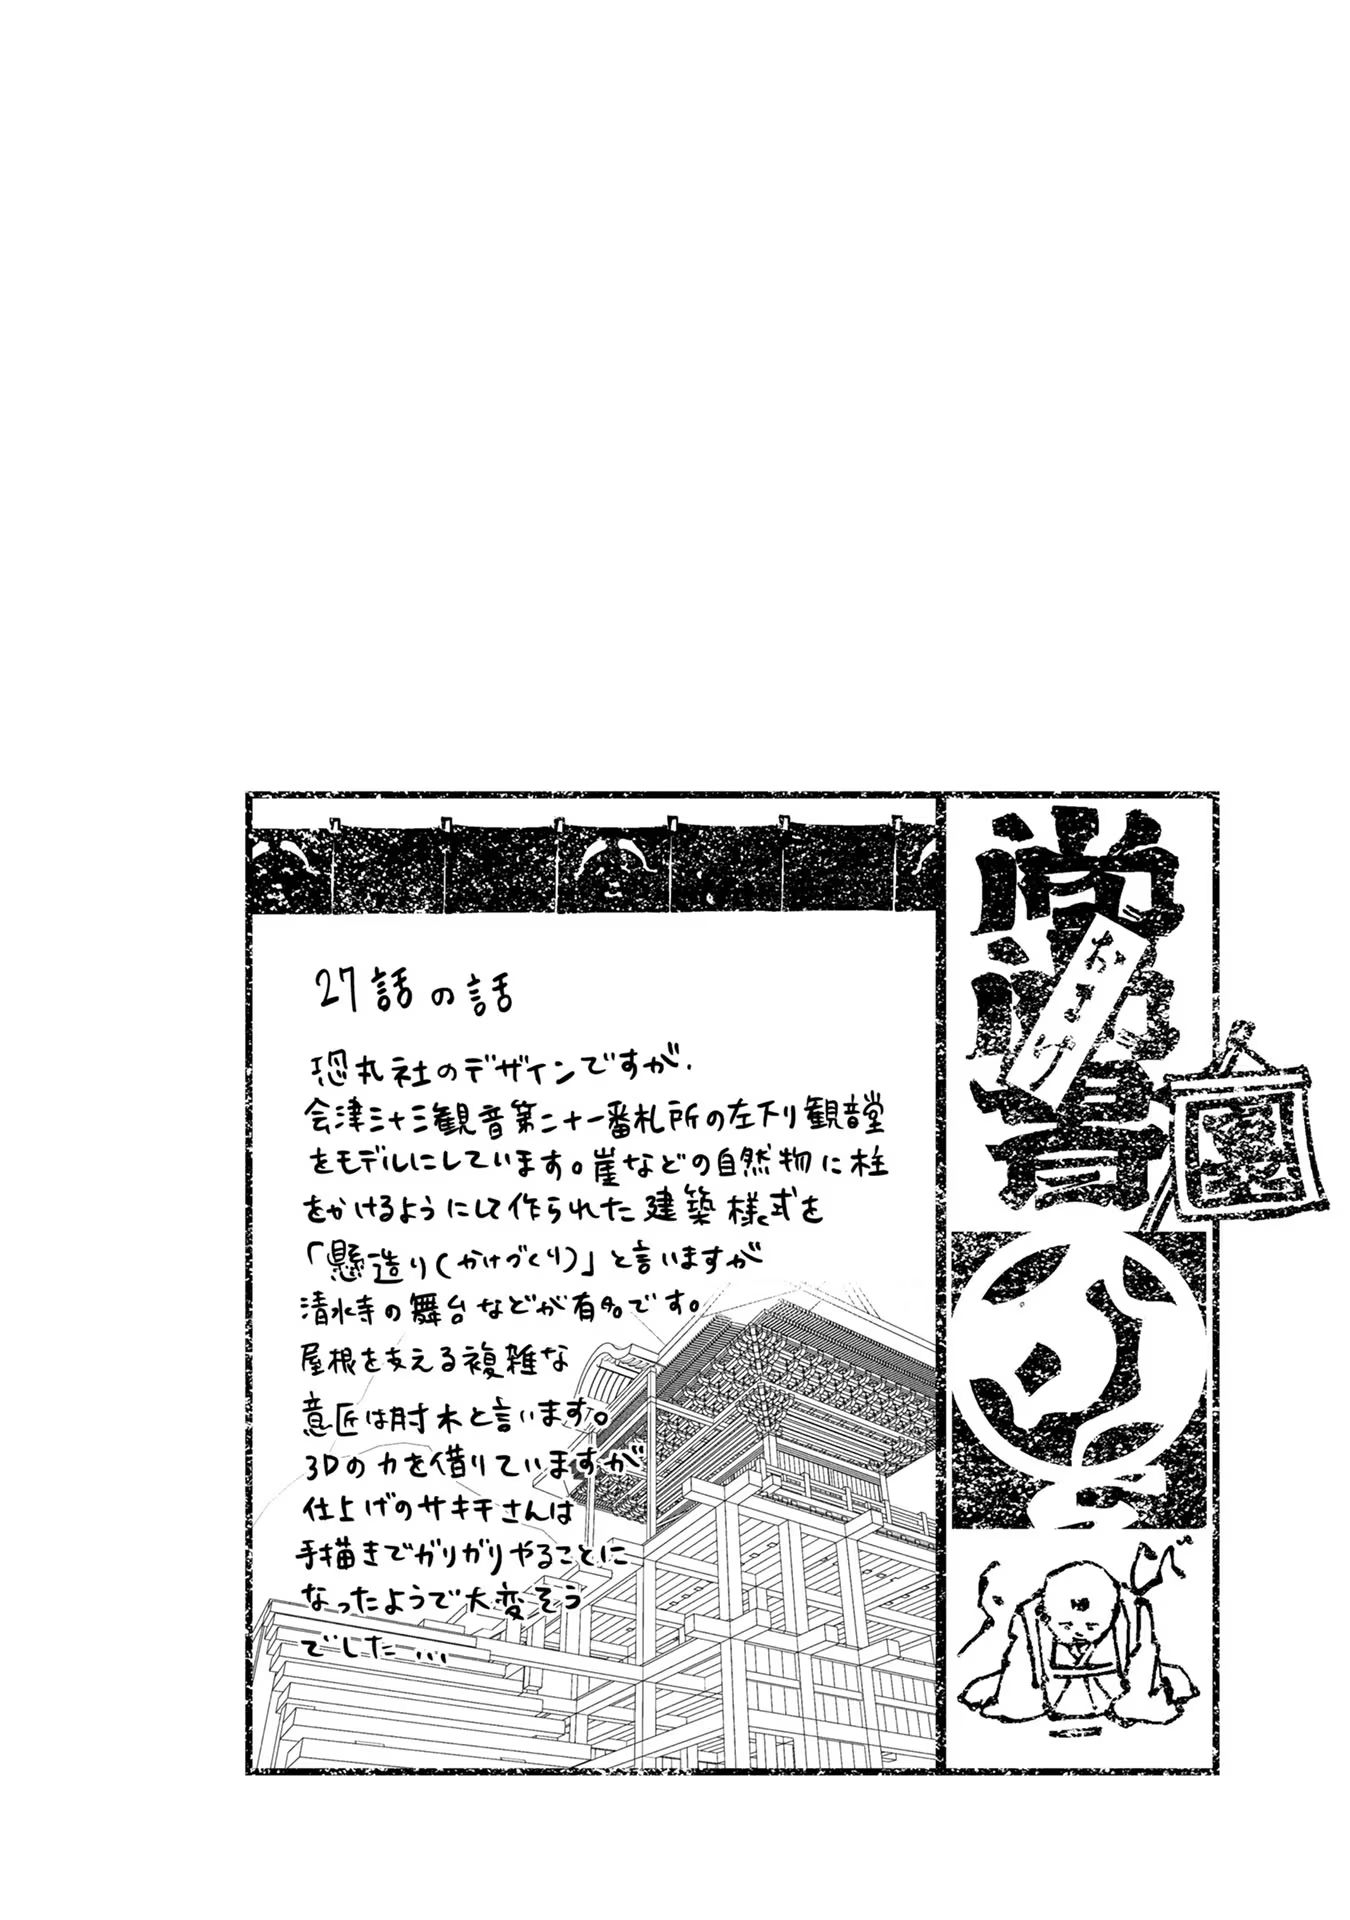 27話の話
恐丸社のデザインですが、
会津三十三観音第二十一番札所の左下り観音堂
をモデルにしています。崖などの自然物に柱
をかけるようにして作られた建築様式を
「懸造り(かけづくり)」と言いますが
清水寺の舞台などが有名です。
屋根を支える複雑な
意匠は肘木と言います。
3Dの力を借りていますが
仕上げのサキチさんは
手描きでガリガリやることに
なったようで大変そう
でした…
おまけ